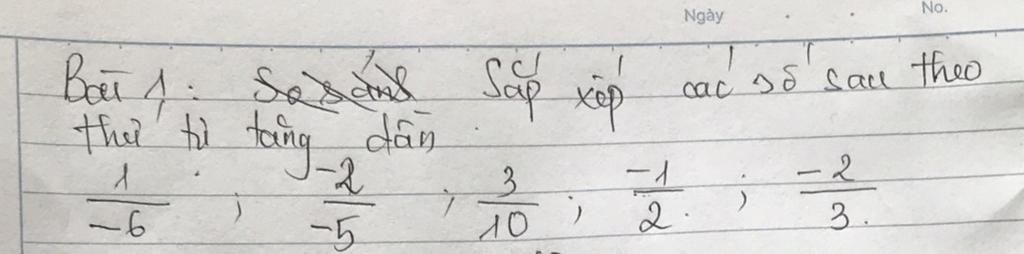 Ngày No.
Bài 1: So sánh Sắp xếp các số sau theo
thứ tự tăng dần.
1/-6 ; -2/-5 ; 3/10 ; -1/2 ; -2/3.